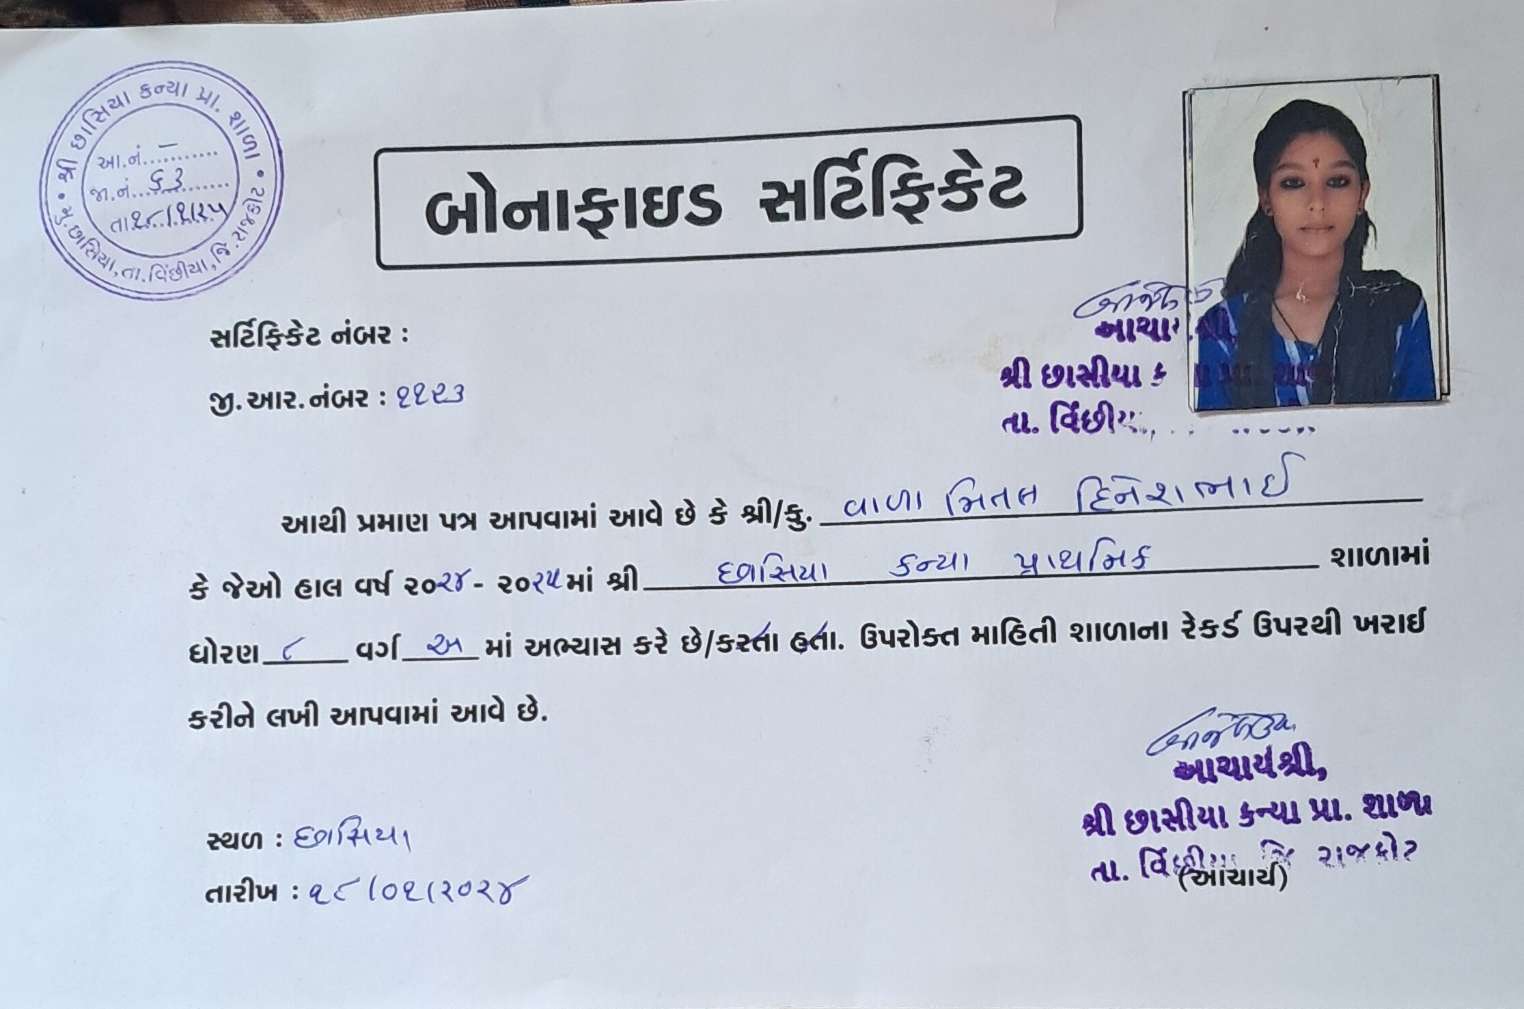 શ્રી છાસિયા કન્યા પ્રા. શાળા
આ.નં. –
જા.નં. ૬૩
તા. ૧૮/૧/૨૫
મુ. છાસિયા, તા. વિંછીયા, જિ. રાજકોટ
બોનાફાઇડ સર્ટિફિકેટ
સર્ટિફિકેટ નંબર :
જી.આર.નંબર : ૧૧૨૩
શ્રી છાસીયા
તા. વિંછી
આથી પ્રમાણ પત્ર આપવામાં આવે છે કે શ્રી/કુ. વાળા મિતલ દિનેશભાઈ
કે જેઓ હાલ વર્ષ ૨૦૨૪ - ૨૦૨૫ માં શ્રી છાસિયા કન્યા પ્રાથમિક શાળામાં
ધોરણ ૮ વર્ગ અ માં અભ્યાસ કરે છે/કરતા હતા. ઉપરોક્ત માહિતી શાળાના રેકર્ડ ઉપરથી ખરાઈ
કરીને લખી આપવામાં આવે છે.
આચાર્યશ્રી,
શ્રી છાસીયા કન્યા પ્રા. શાળા
તા. વિંછીયા જિ રાજકોટ
(આચાર્ય)
સ્થળ : છાસિયા
તારીખ : ૧૮/૦૧/૨૦૨૪